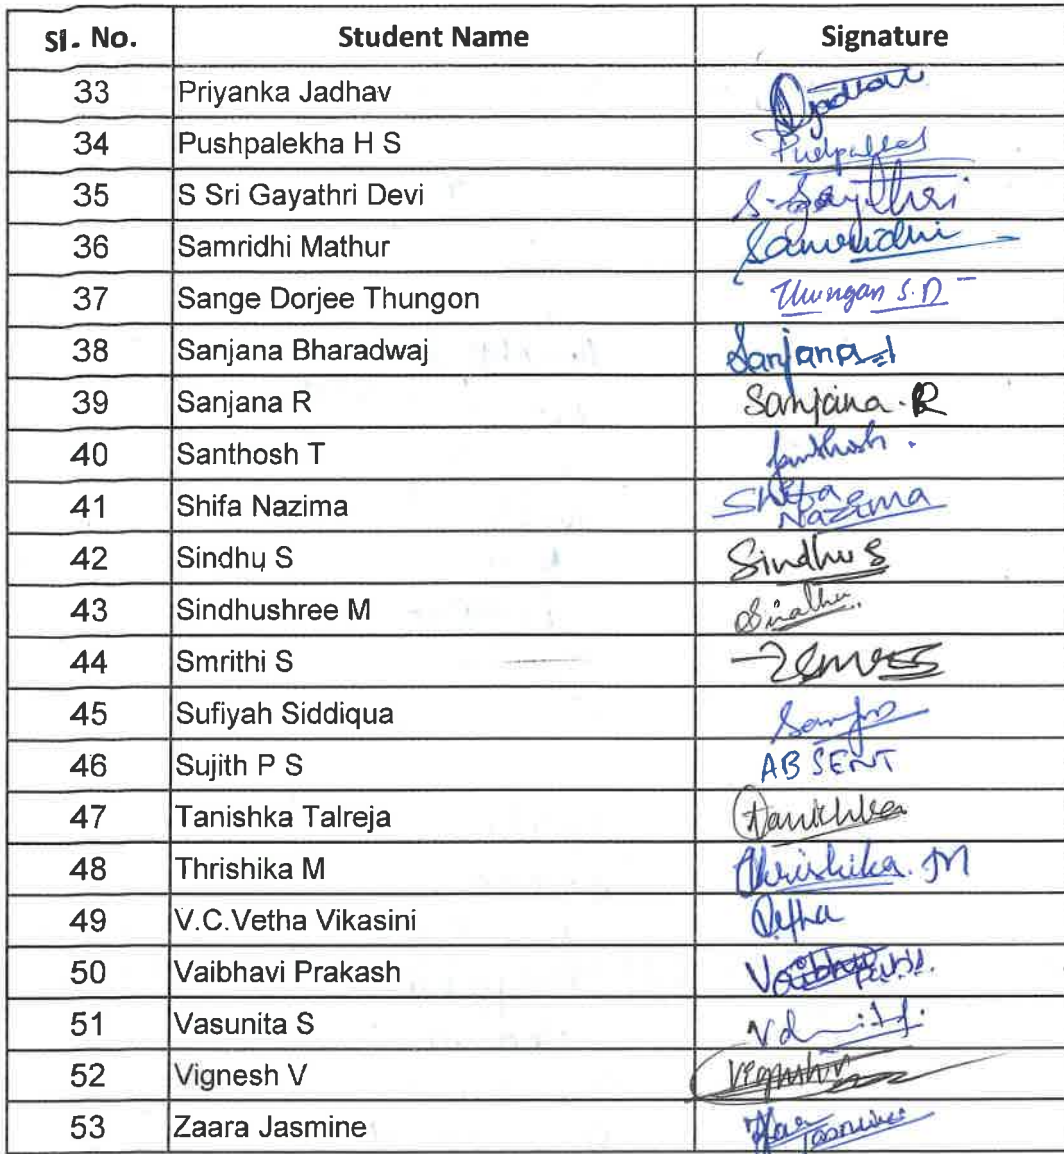 Sl. No. Student Name Signature
33 Priyanka Jadhav
34 Pushpalekha H S
35 S Sri Gayathri Devi S. Gayathri
36 Samridhi Mathur Samridhi
37 Sange Dorjee Thungon Thungon S.D
38 Sanjana Bharadwaj Sanjana
39 Sanjana R Sanjana. R
40 Santhosh T Santhosh.
41 Shifa Nazima Shifa Nazima
42 Sindhu S Sindhu S
43 Sindhushree M Sindhu
44 Smrithi S
45 Sufiyah Siddiqua
46 Sujith P S ABSENT
47 Tanishka Talreja Tanishka
48 Thrishika M Thrishika. M
49 V.C.Vetha Vikasini Vetha
50 Vaibhavi Prakash
51 Vasunita S
52 Vignesh V Vignesh V
53 Zaara Jasmine Jasmine